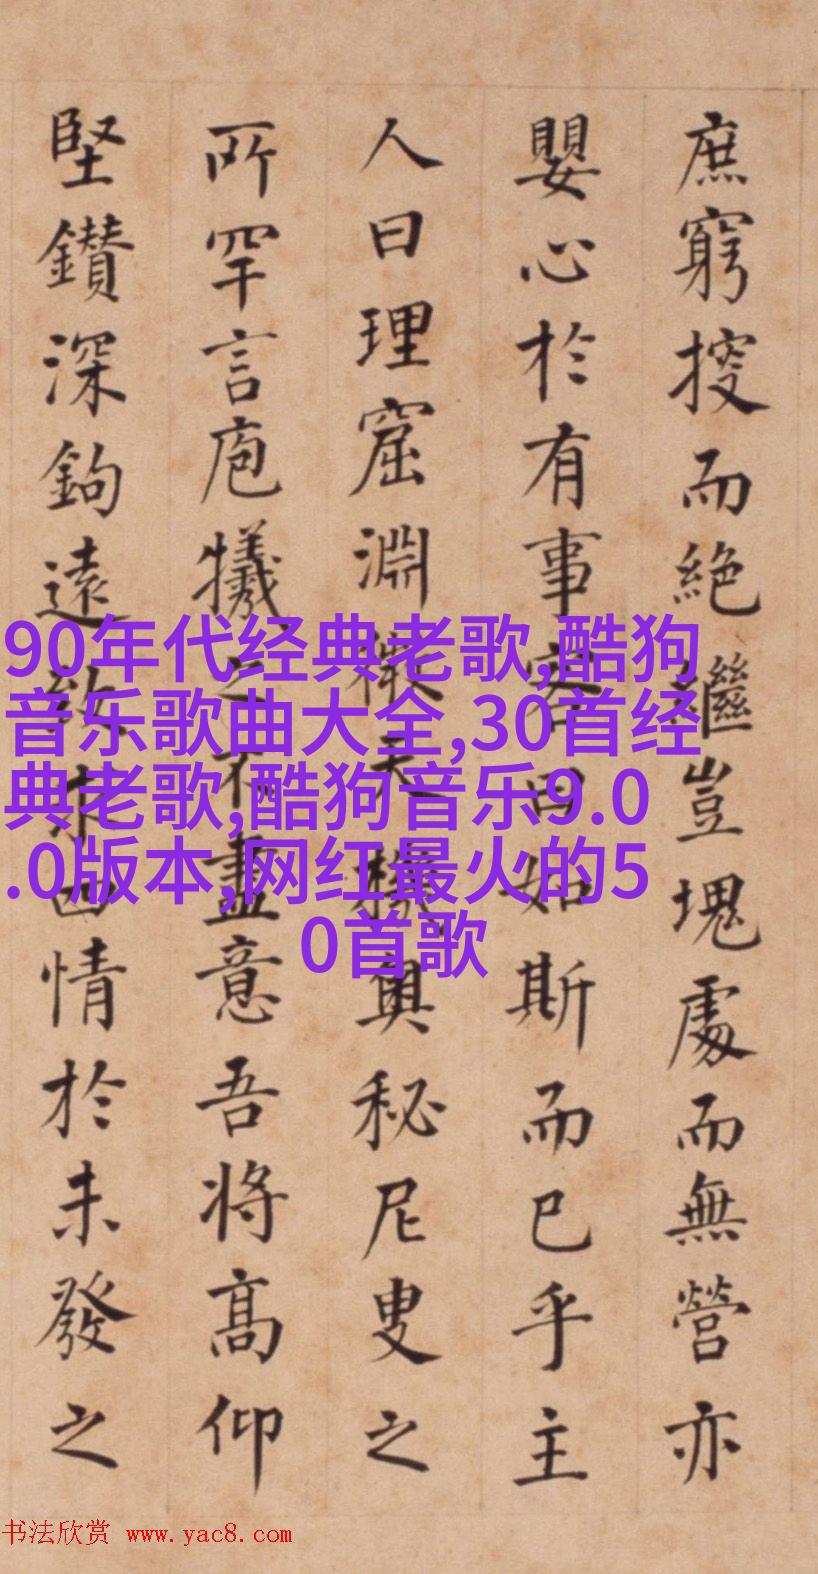 庶窮搜而絕繼豈塊處而無營亦
嬰心於有事客曰如斯而已乎主
人曰理窟淵微天機奧秘尼叟之
所罕言庖犧之不盡意吾將高仰
堅鑽深鉤遠致求四情於未發之
90年代经典老歌,酷狗
音乐歌曲大全,30首经
典老歌,酷狗音乐9.0
.0版本,网红最火的5
0首歌
书法欣赏 www.yac8.com